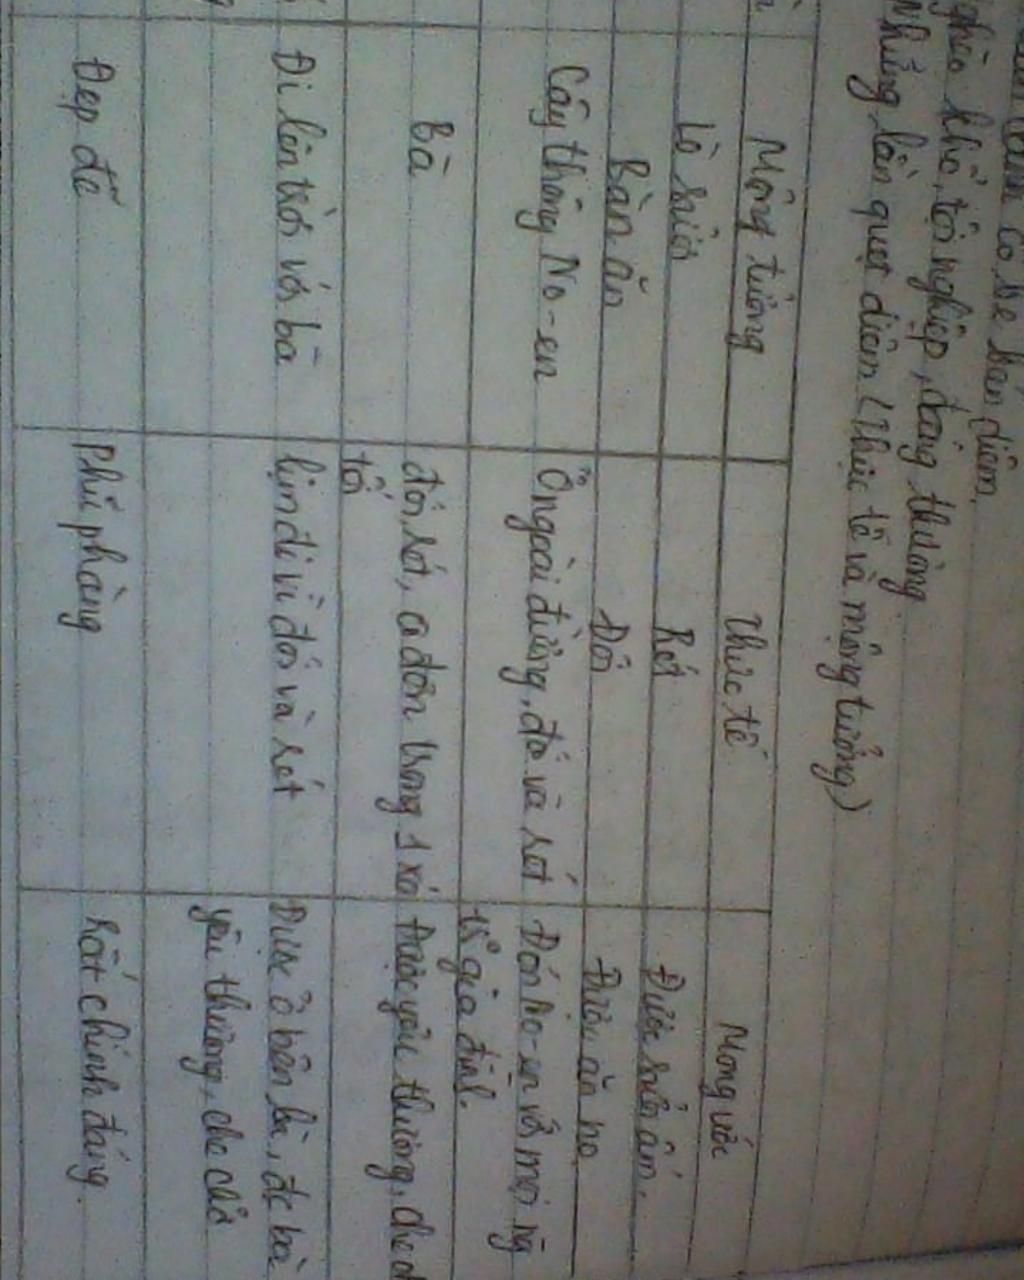 cô bé bán diêm.
nghèo khổ, tội nghiệp, đáng thương
Những lần quẹt diêm (thực tế và mộng tưởng)
Mộng tưởng Thực tế Mong ước
Lò sưởi Rét Được sưởi ấm.
Bàn ăn Đói Được ăn no
Cây thông No-en Ở ngoài đường, đói và rét Đón No-en với mọi ng
trg gia đình.
Bà đói, rét, cô đơn trong 1 xó Được yêu thương, che
tối
Đi lên trời với bà lịm đi vì đói và rét Được ở bên bà, đc bà
yêu thương, che chở
Đẹp đẽ Phũ phàng Rất chính đáng.